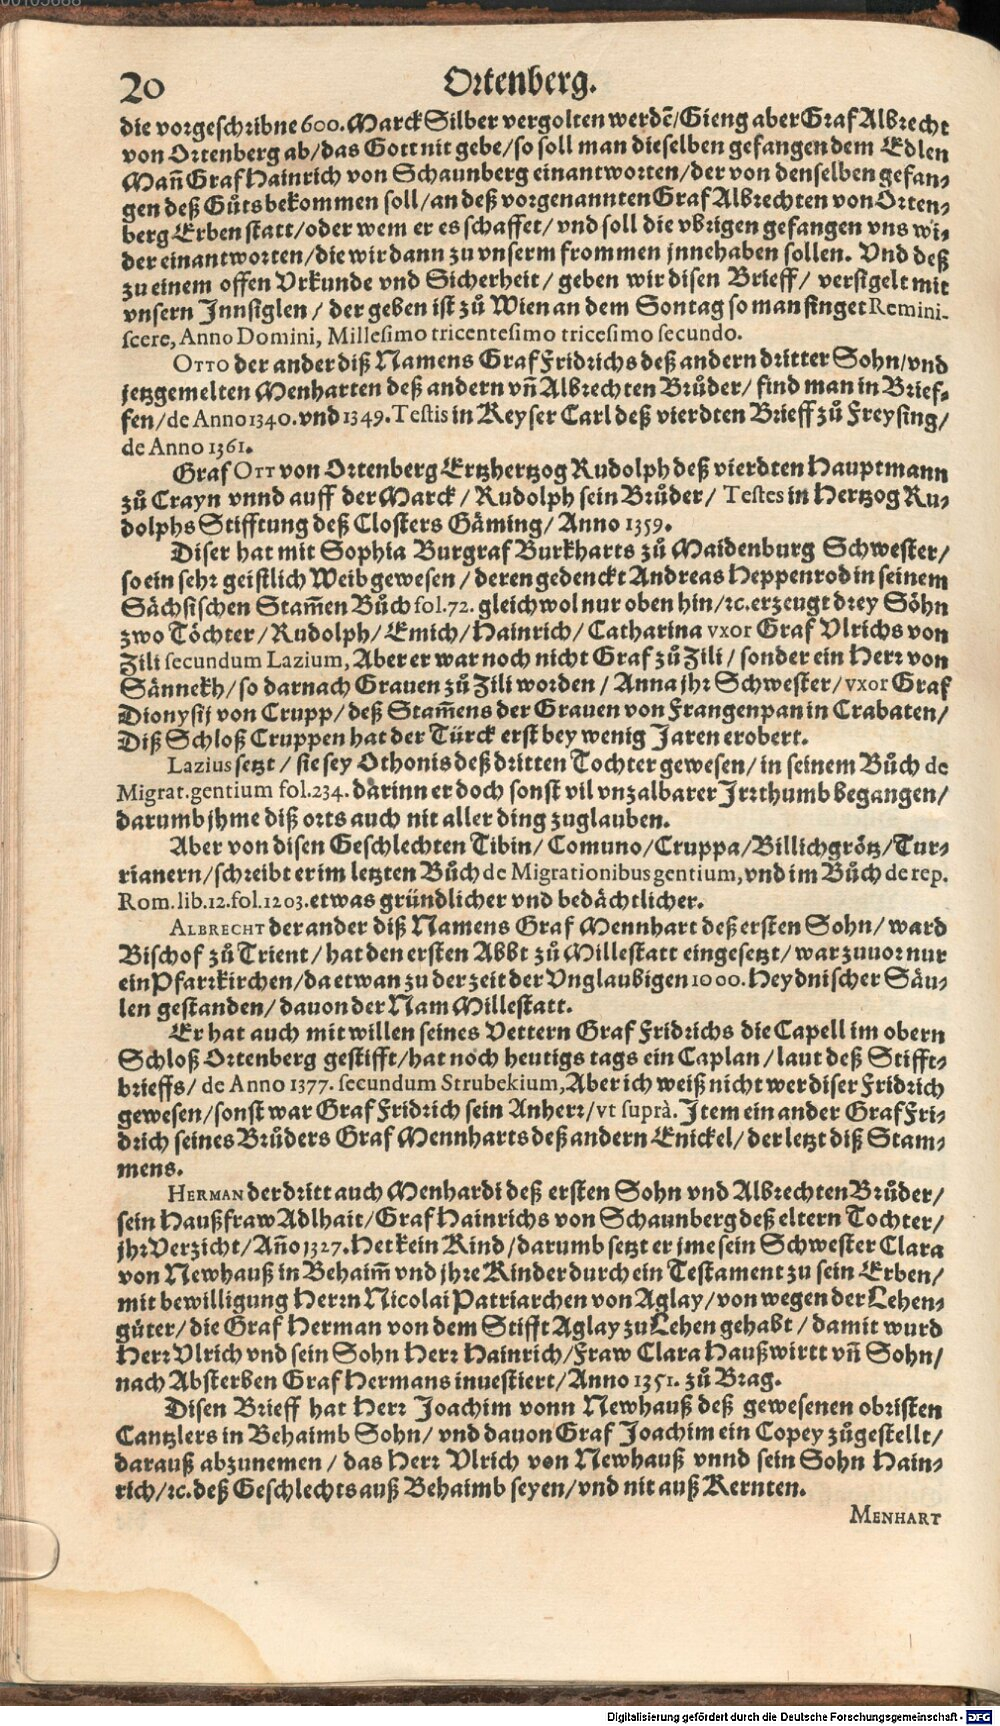 20 Ortenberg.
die vorgeschribne 600. Marck Silber vergolten werdē/ Gieng aber Graf Albrecht
von Ortenberg ab/ das Gott nit gebe/ so soll man dieselben gefangen dem Edlen
Mañ Graf Hainrich von Schaunberg einantworten/ der von denselben gefan-
gen deß Gůts bekommen soll/ an deß vorgenannten Graf Albrechten von Orten-
berg Erben statt/ oder wem er es schaffet/ vnd soll die vbrigen gefangen vns wi-
der einantworten/ die wir dann zu vnserm frommen jnnehaben sollen. Vnd deß
zu einem offen Vrkunde vnd Sicherheit/ geben wir disen Brieff/ versigelt mit
vnsern Jnnsiglen/ der geben ist zů Wien an dem Sontag so man singet Remini-
scere, Anno Domini, Millesimo tricentesimo tricesimo secundo.
OTTO der ander diß Namens Graf Fridrichs deß andern dritter Sohn/ vnd
jetzgemelten Menharten deß andern vñ Albrechten Brůder/ find man in Brief-
fen/ de Anno 1340. vnd 1349. Testis in Keyser Carl deß vierdten Brieff zů Freysing/
de Anno 1361.
Graf OTT von Ortenberg Ertzhertzog Rudolph deß vierdten Hauptmann
zů Crayn vnnd auff der Marck/ Rudolph sein Brůder/ Testes in Hertzog Ru-
dolphs Stifftung deß Closters Gäming/ Anno 1359.
Diser hat mit Sophia Burgraf Burkharts zů Maidenburg Schwester/
so ein sehr geistlich Weib gewesen/ deren gedenckt Andreas Heppenrod in seinem
Sächsischen Stam̃en Bůch fol. 72. gleichwol nur oben hin/ ꝛc. erzeugt drey Söhn
zwo Töchter/ Rudolph/ Emich/ Hainrich/ Catharina vxor Graf Vlrichs von
Zili secundum Lazium, Aber er war noch nicht Graf zů Zili/ sonder ein Herr von
Sännekh/ so darnach Grauen zů Zili worden/ Anna jhr Schwester/ vxor Graf
Dionysij von Crupp/ deß Stam̃ens der Grauen von Frangenpan in Crabaten/
Diß Schloß Cruppen hat der Türck erst bey wenig Jaren erobert.
Lazius setzt/ sie sey Othonis deß dritten Tochter gewesen/ in seinem Bůch de
Migrat. gentium fol. 234. darinn er doch sonst vil vnzalbarer Jrrthumb begangen/
darumb jhme diß orts auch nit aller ding zuglauben.
Aber von disen Geschlechten Tibin/ Comuno/ Cruppa/ Billichgrötz/ Tur-
rianern/ schreibt er im letzten Bůch de Migrationibus gentium, vnd im Bůch de rep.
Rom. lib. 12. fol. 1203. etwas gründlicher vnd bedächtlicher.
ALBRECHT der ander diß Namens Graf Mennhart deß ersten Sohn/ ward
Bischof zů Trient/ hat den ersten Abbt zů Millestatt eingesetzt/ war zuuor nur
ein Pfarrkirchen/ da etwan zu der zeit der Vnglaubigen 1000. Heydnischer Säu-
len gestanden/ dauon der Nam Millestatt.
Er hat auch mit willen seines Vettern Graf Fridrichs die Capell im obern
Schloß Ortenberg gestifft/ hat noch heutigs tags ein Caplan/ laut deß Stifft-
brieffs/ de Anno 1377. secundum Strubekium, Aber ich weiß nicht wer diser Fridrich
gewesen/ sonst war Graf Fridrich sein Anherr/ vt suprà. Jtem ein ander Graf Fri-
drich seines Brůders Graf Mennharts deß andern Enickel/ der letzt diß Stam-
mens.
HERMAN der dritt auch Menhardi deß ersten Sohn vnd Albrechten Brůder/
sein Haußfraw Adlhait/ Graf Hainrichs von Schaunberg deß eltern Tochter/
jhr Verzicht/ Año 1327. Het kein Kind/ darumb setzt er jme sein Schwester Clara
von Newhauß in Behaim̃ vnd jhre Kinder durch ein Testament zu sein Erben/
mit bewilligung Herrn Nicolai Patriarchen von Aglay/ von wegen der Lehen-
güter/ die Graf Herman von dem Stifft Aglay zu Lehen gehabt/ damit wurd
Herr Vlrich vnd sein Sohn Herr Hainrich/ Fraw Clara Haußwirtt vñ Sohn/
nach Absterben Graf Hermans inuestiert/ Anno 1351. zů Brag.
Disen Brieff hat Herr Joachim vonn Newhauß deß gewesenen obristen
Cantzlers in Behaimb Sohn/ vnd dauon Graf Joachim ein Copey zůgestellt/
darauß abzunemen/ das Herr Vlrich von Newhauß vnnd sein Sohn Hain-
rich/ ꝛc. deß Geschlechts auß Behaimb seyen/ vnd nit auß Kernten.
MENHART
Digitalisierung gefördert durch die Deutsche Forschungsgemeinschaft - DFG